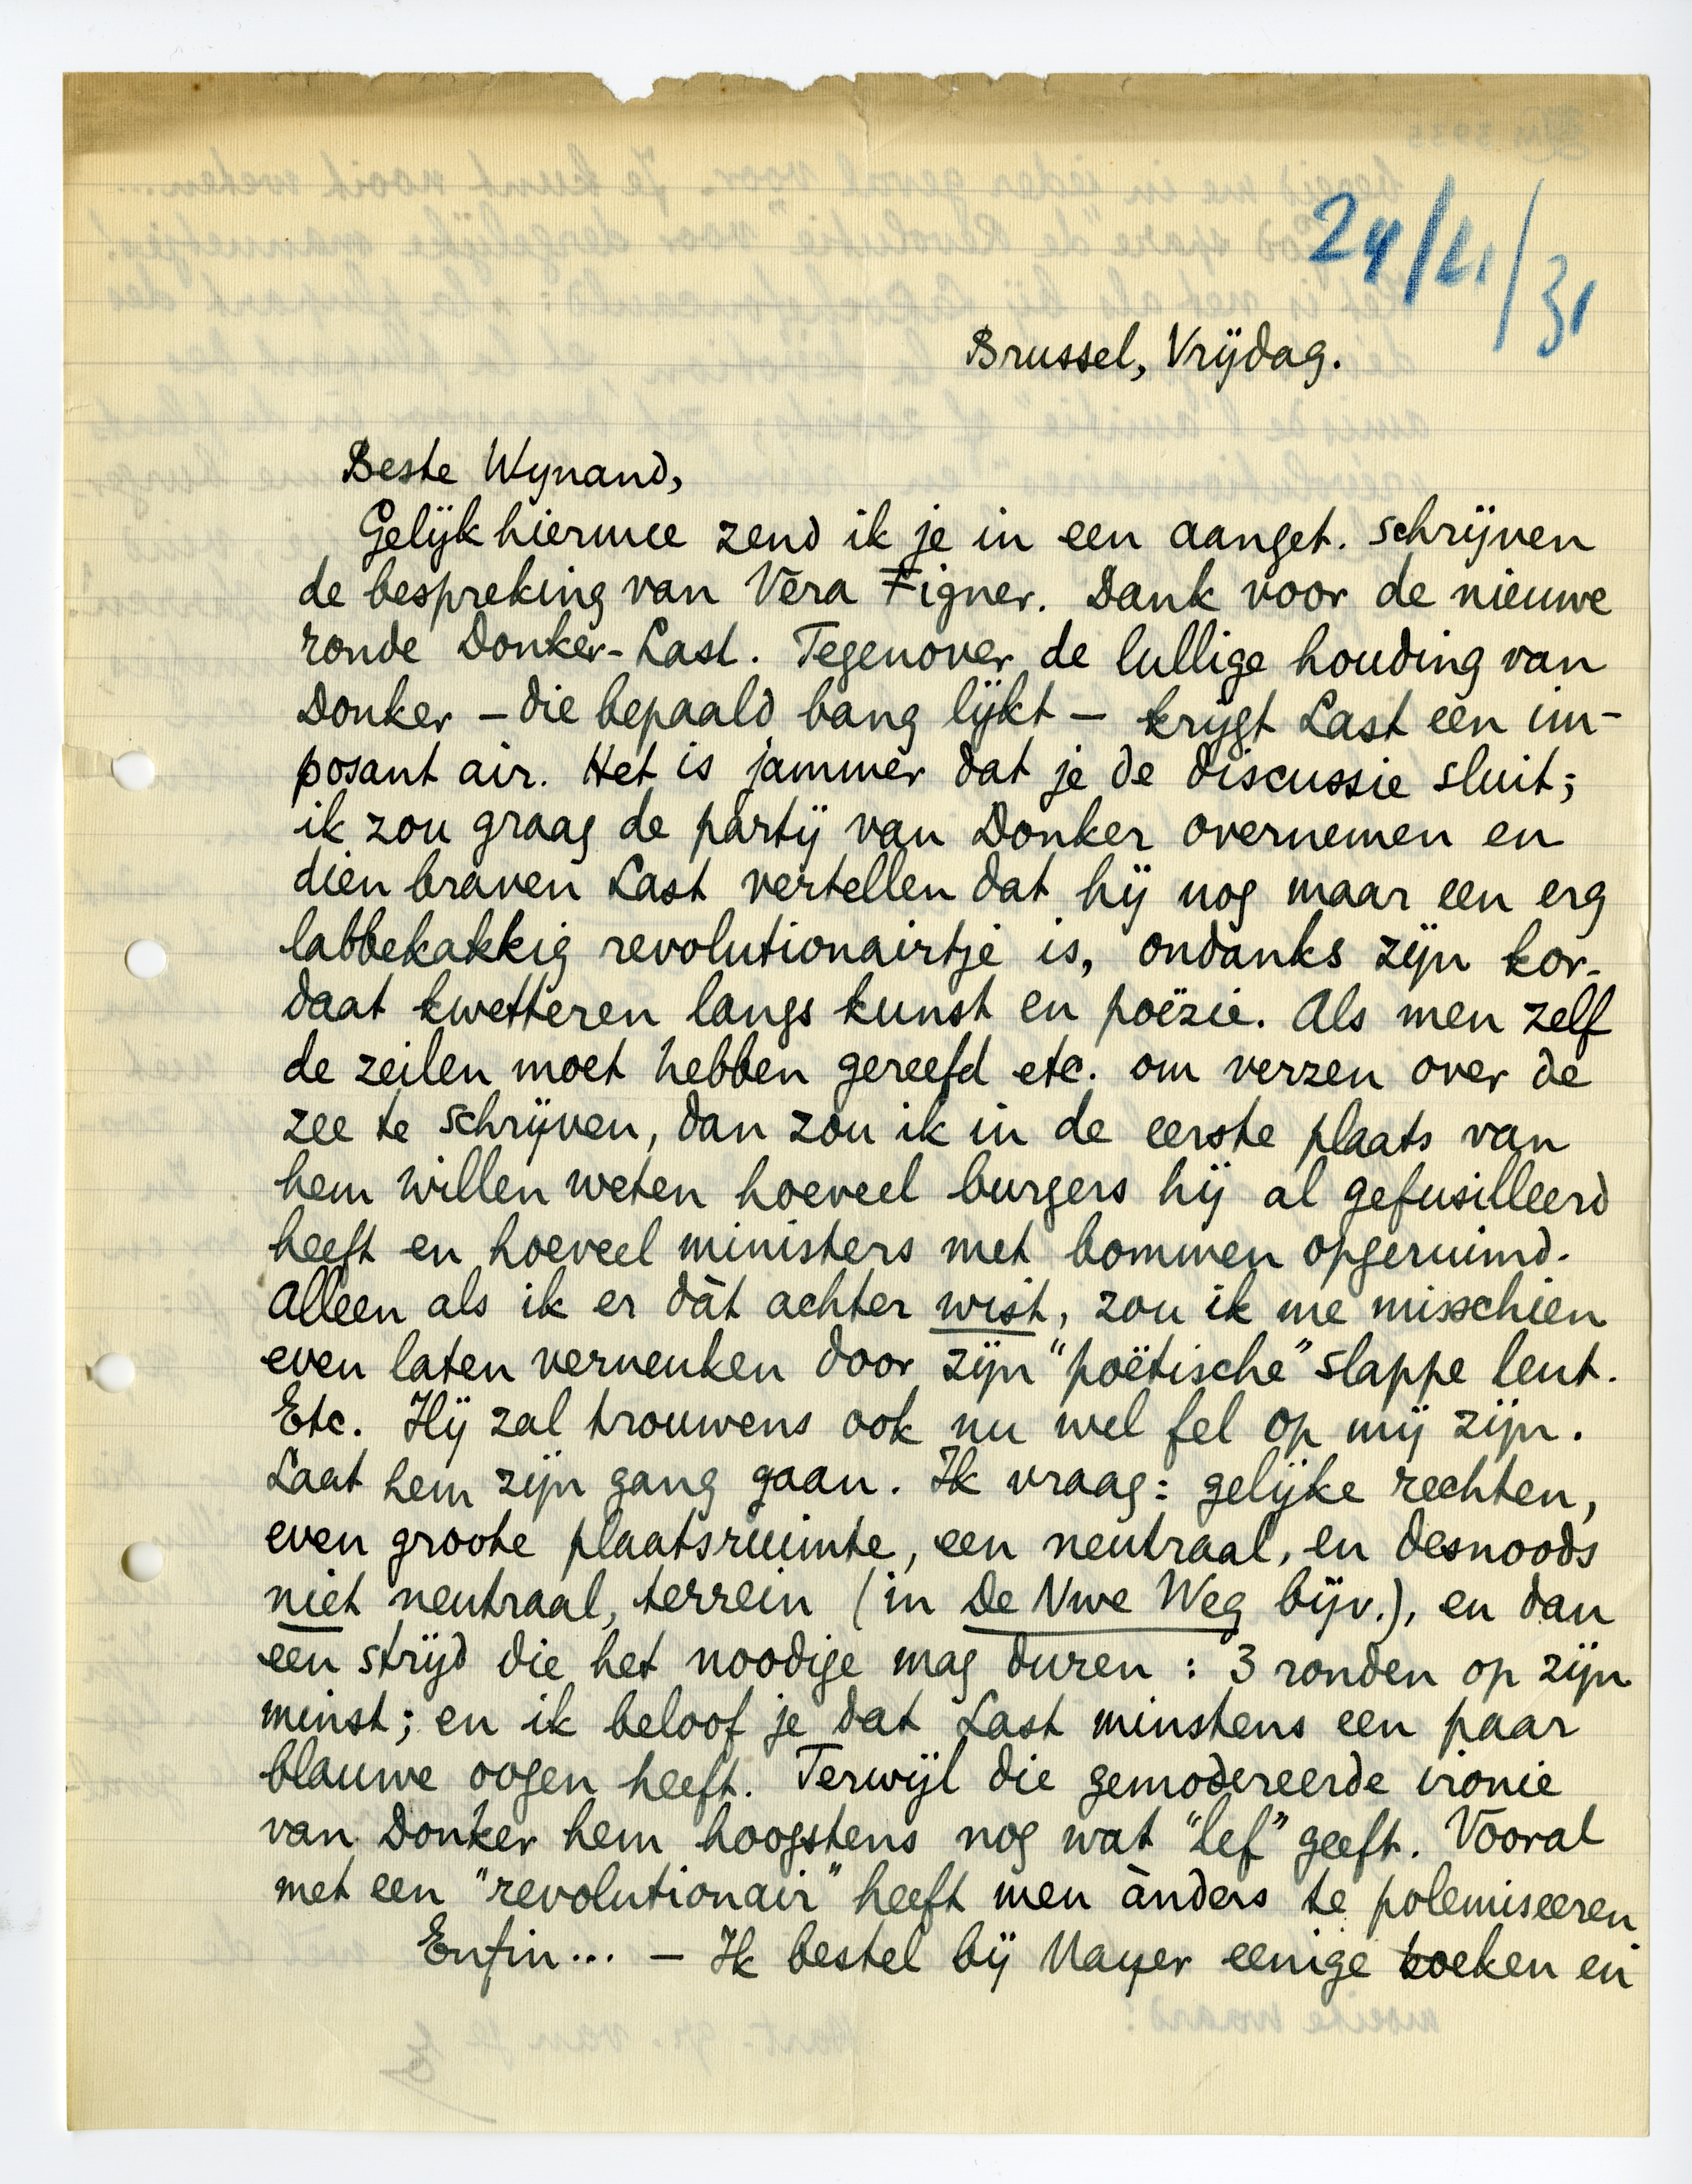 24/4/31
Brussel, Vrijdag.
Beste Wijnand,
Gelijk hiermee zend ik je in een aanget. schrijven
de bespreking van Vera Figner. Dank voor de nieuwe
ronde Donker-Last. Tegenover de lullige houding van
Donker – die bepaald bang lijkt – krijgt Last een im-
posant air. Het is jammer dat je de discussie sluit;
ik zou graag de partij van Donker overnemen en
dien braven Last vertellen dat hij nog maar een erg
labbekakkig revolutionairtje is, ondanks zijn kor-
daat kwetteren langs kunst en poëzie. Als men zelf
de zeilen moet hebben gereefd etc. om verzen over de
zee te schrijven, dan zou ik in de eerste plaats van
hem willen weten hoeveel burgers hij al gefusilleerd
heeft en hoeveel ministers met bommen opgeruimd.
Alleen als ik er dàt achter wist, zou ik me misschien
even laten verneuken door zijn "poëtische" slappe leut.
Etc. Hij zal trouwens ook nu wel fel op mij zijn.
Laat hem zijn gang gaan. Ik vraag: gelijke rechten,
even groote plaatsruimte, een neutraal, en desnoods
niet neutraal, terrein (in De Nwe Weg bijv.), en dan
een strijd die het noodige mag duren: 3 ronden op zijn
minst; en ik beloof je dat Last minstens een paar
blauwe oogen heeft. Terwijl die gemodereerde ironie
van Donker hem hoogstens nog wat "lef" geeft. Vooral
met een "revolutionair" heeft men ànders te polemiseeren
Enfin... – Ik bestel bij Mayer eenige boeken en